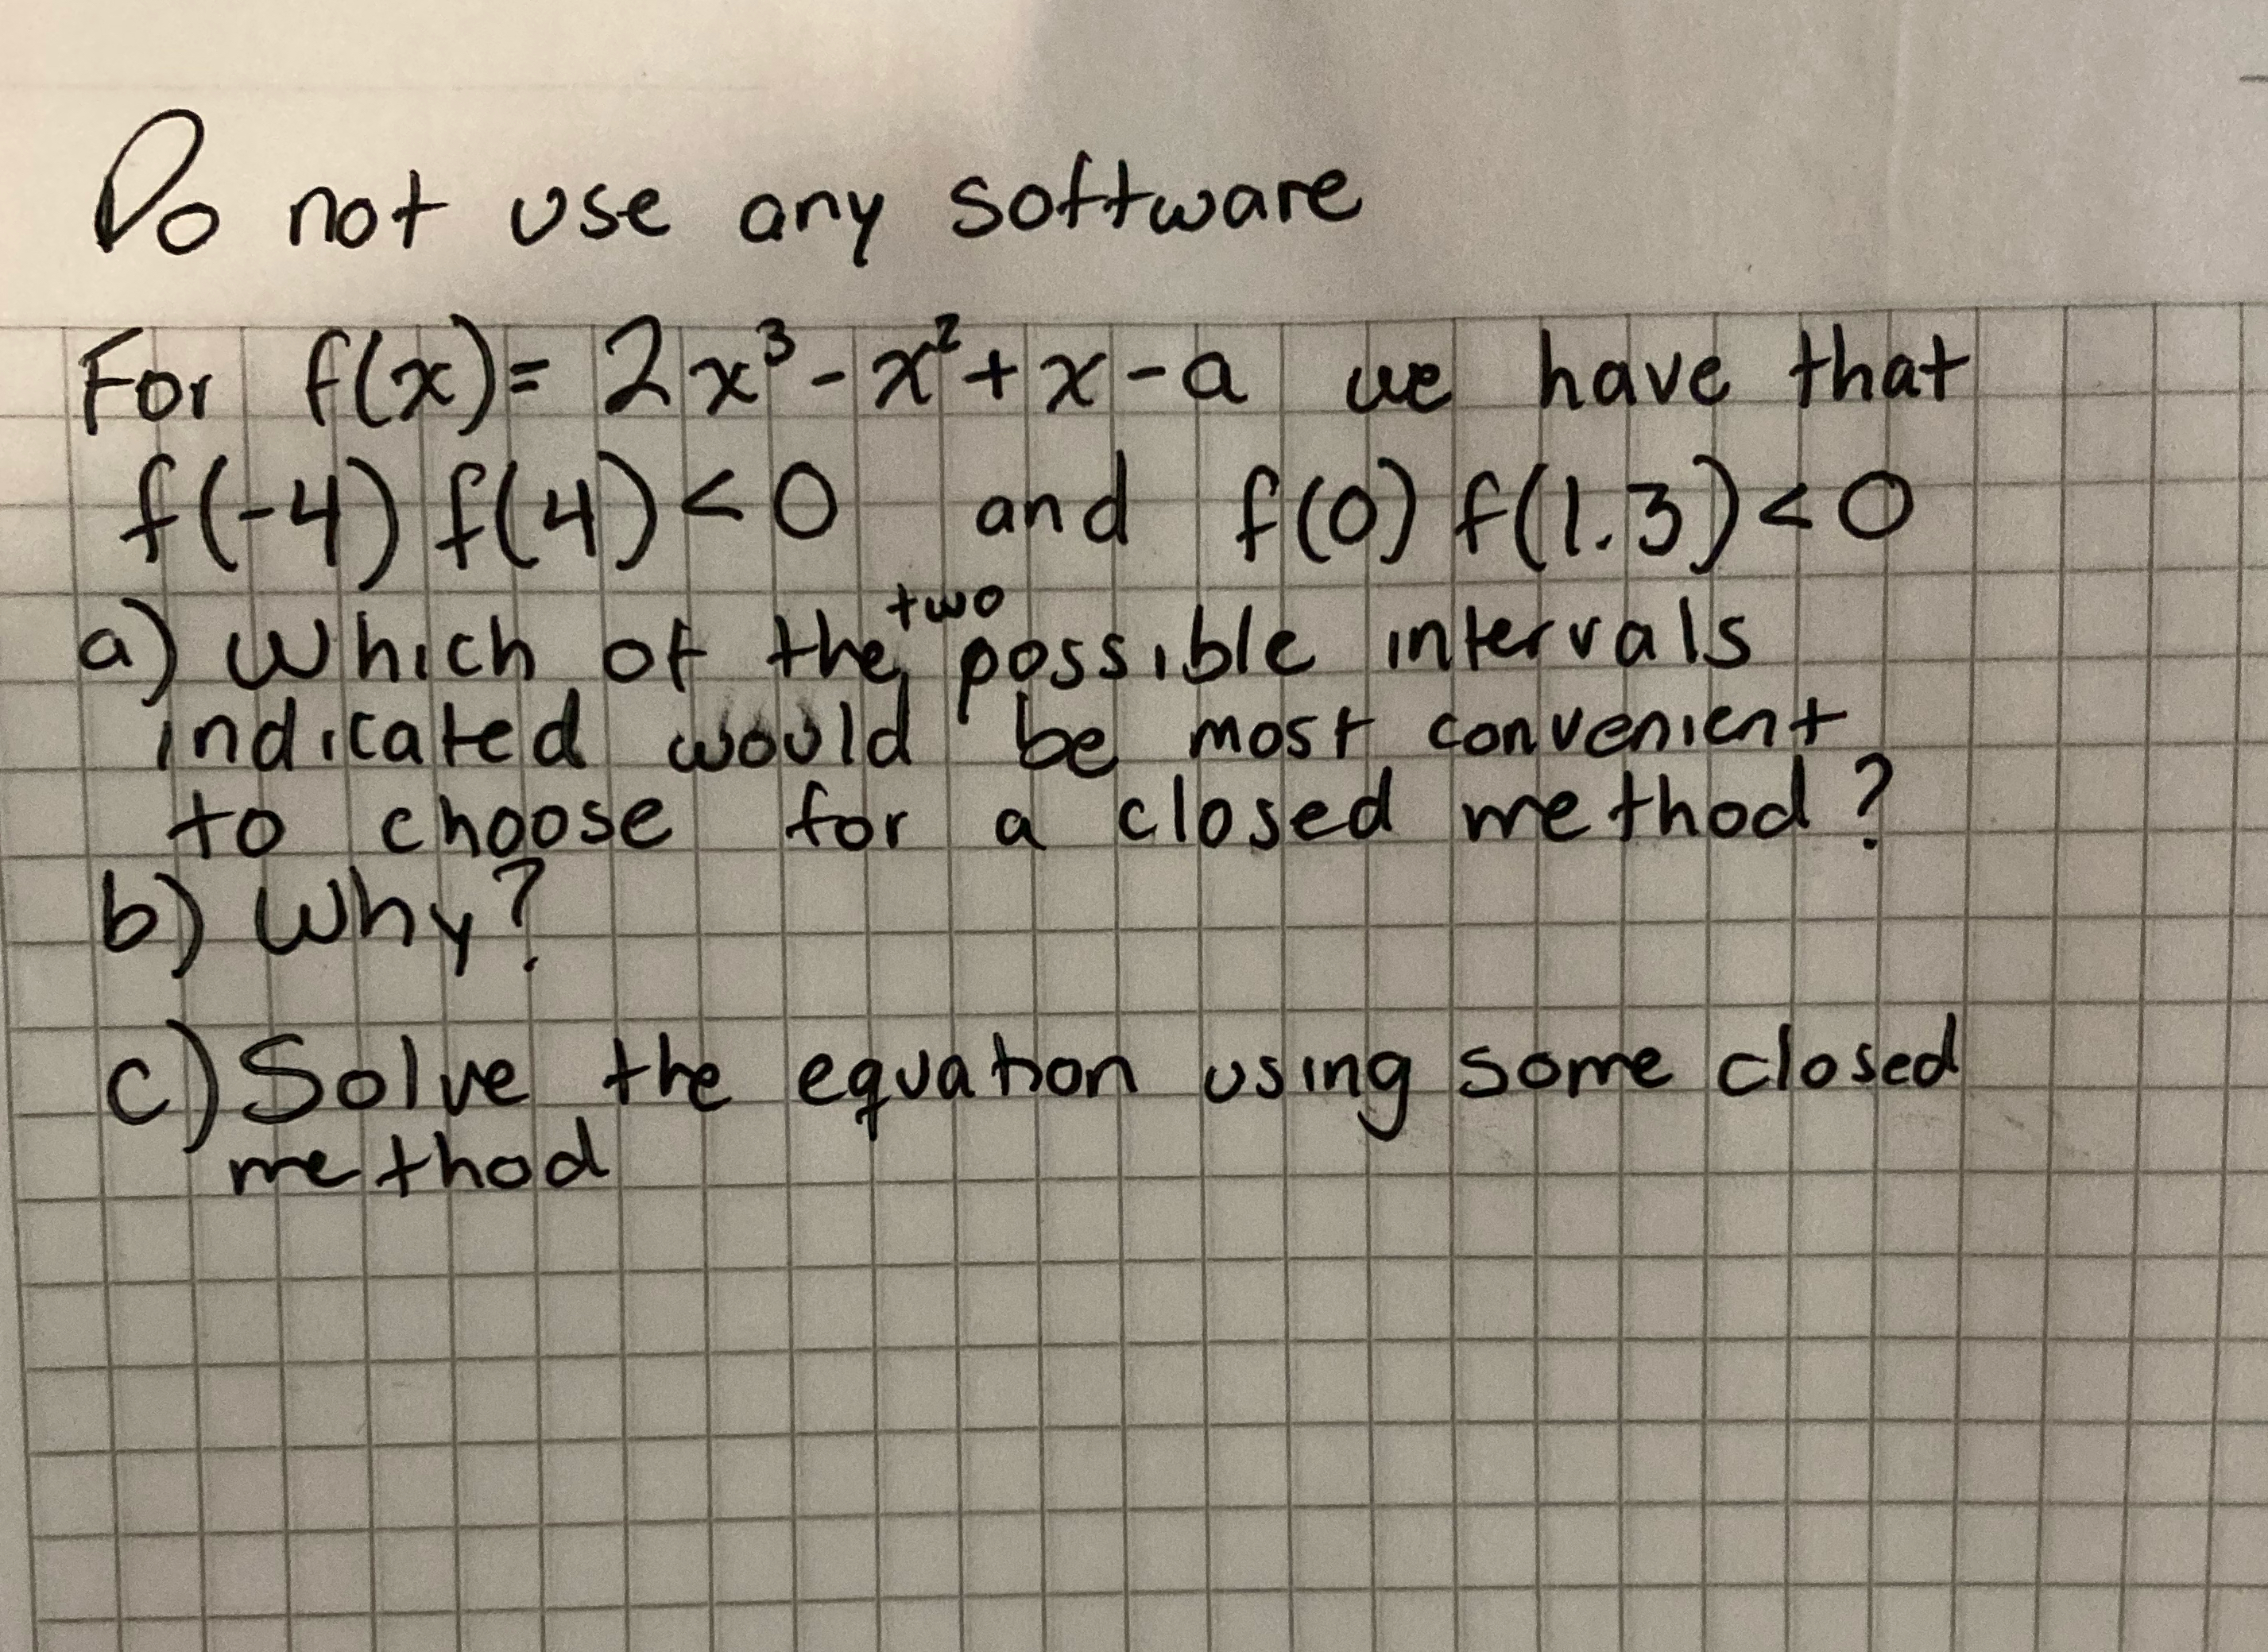 Do not use any software
For f(x)= 2x³-x²+x-a we have that
f(-4) f(4)<0 and f(0) f(1.3)<0
a) Which of the two possible intervals
indicated would be most convenient
to choose for a closed method?
b) Why?
c) Solve the equation using some closed
method